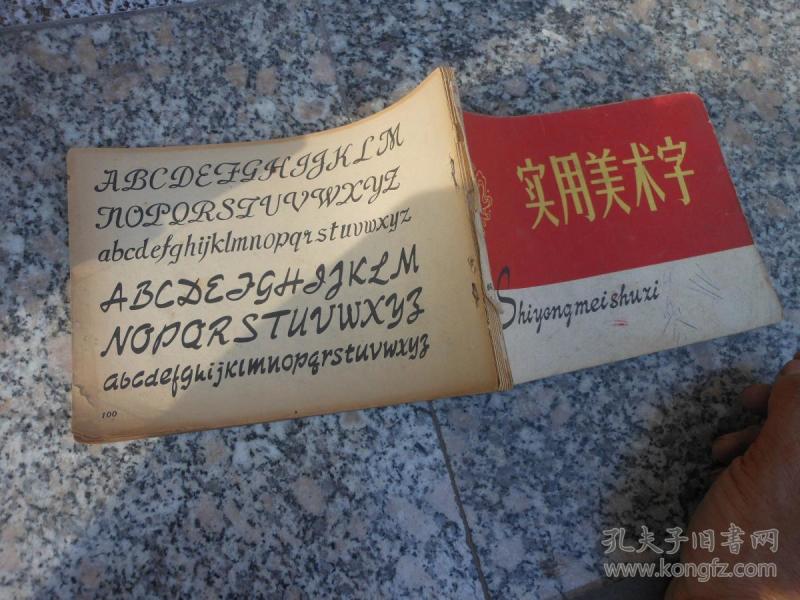 ABCDEFGHIJKLM
NOPQRSTUVWXYZ
abcdefghijklmnopqrstuvwxyz
ABCDEFGHIJKLM
NOPQRSTUVWXYZ
abcdefghijklmnopqrstuvwxyz
100
实用美术字
Shiyongmeishuzi
孔夫子旧书网
www.kongfz.com